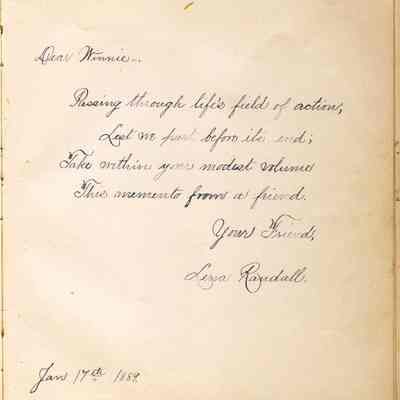 Dear Winnie,-
Passing through life's field of action,
Lest we part before its end;
Take within your modest volume
This memento from a friend.
Your Friend,
Randall.
Jan 17th 1889.